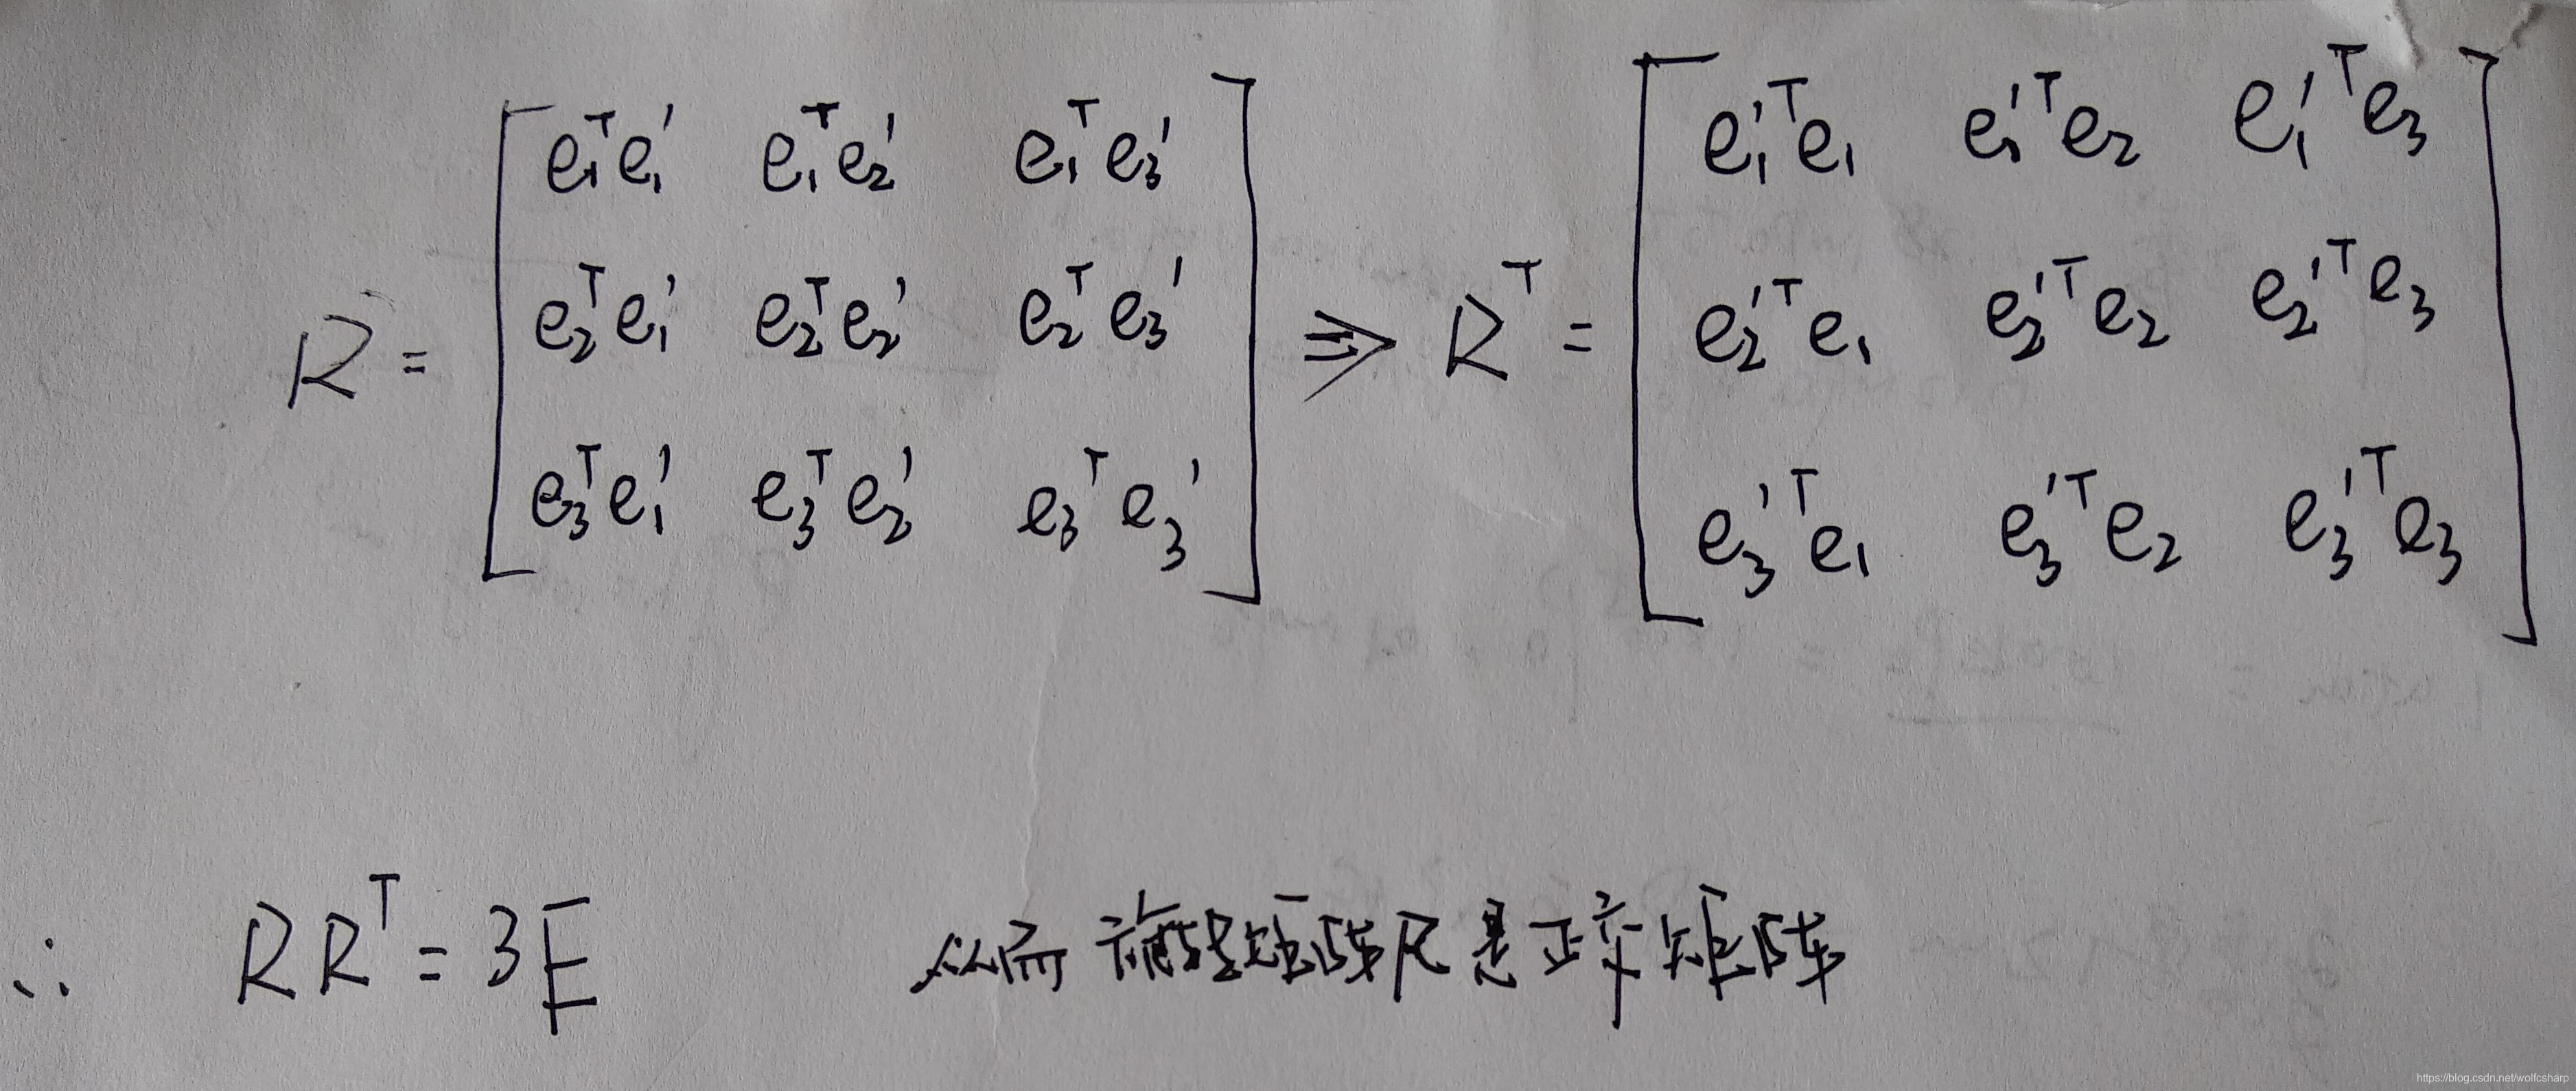 R = [ e₁ᵀe₁′ e₁ᵀe₂′ e₁ᵀe₃′ ; e₂ᵀe₁′ e₂ᵀe₂′ e₂ᵀe₃′ ; e₃ᵀe₁′ e₃ᵀe₂′ e₃ᵀe₃′ ] ⇒ Rᵀ = [ e₁′ᵀe₁ e₁′ᵀe₂ e₁′ᵀe₃ ; e₂′ᵀe₁ e₂′ᵀe₂ e₂′ᵀe₃ ; e₃′ᵀe₁ e₃′ᵀe₂ e₃′ᵀe₃ ]
∴ RRᵀ = 3E 从而旋转矩阵R是正交矩阵
https://blog.csdn.net/wolfcsharp